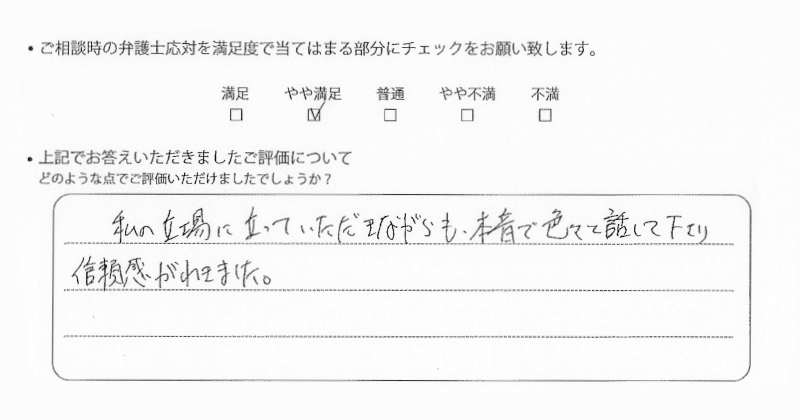 ・ご相談時の弁護士応対を満足度で当てはまる部分にチェックをお願い致します。
満足 やや満足 普通 やや不満 不満
□ ☑ □ □ □
・上記でお答えいただきましたご評価について
どのような点でご評価いただけましたでしょうか？
私の立場に立っていただきながらも、本音で色々と話して下さり
信頼感がもてました。